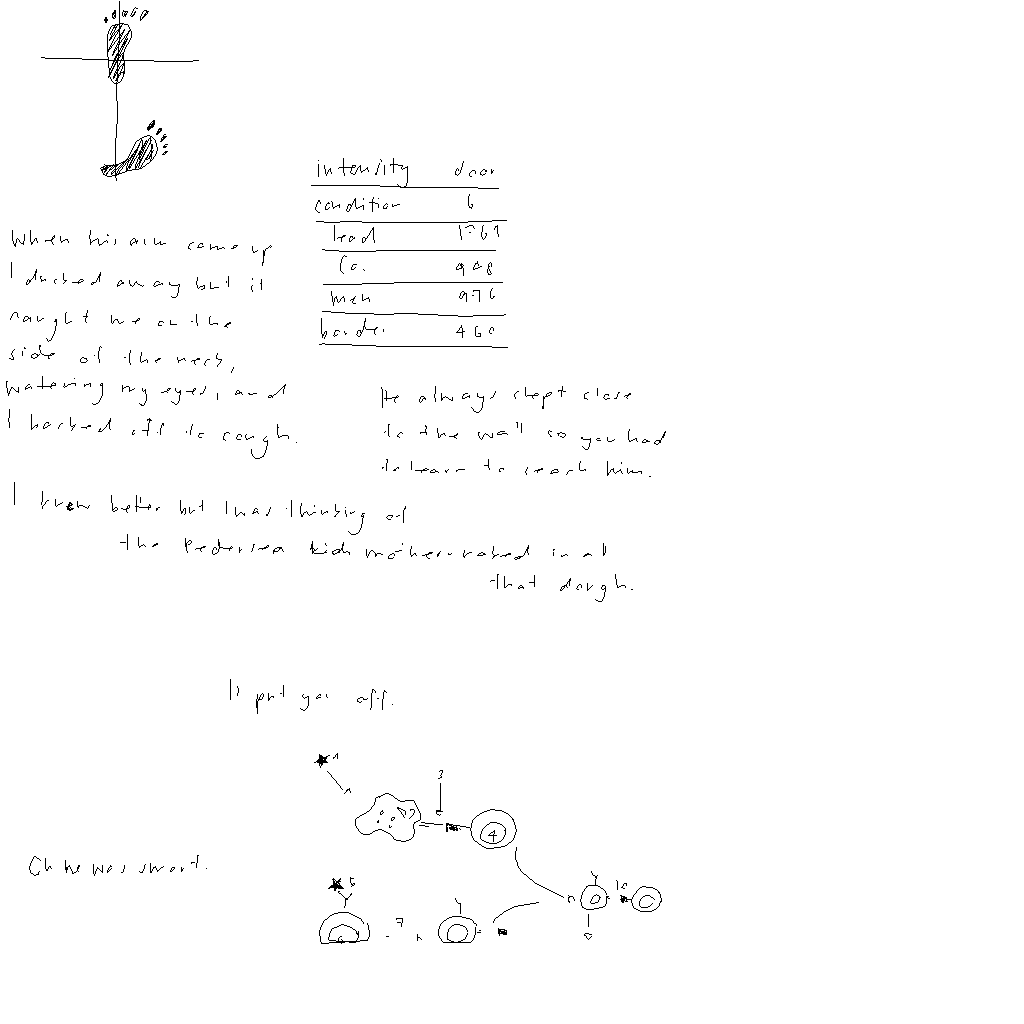 intensity door
condition 6
lead
Co. 948
men 976
border 460
When his arm came up
I ducked away but it
caught me on the
side of the neck,
watering my eyes, and
I backed off to cough.
He always slept close
to the wall so you had
to learn to reach him.
I knew better but I was thinking of
the Pedersen kid mother-naked in all
that dough.
It put you off.
1
3
4
Oh he was smart.
6
7
10